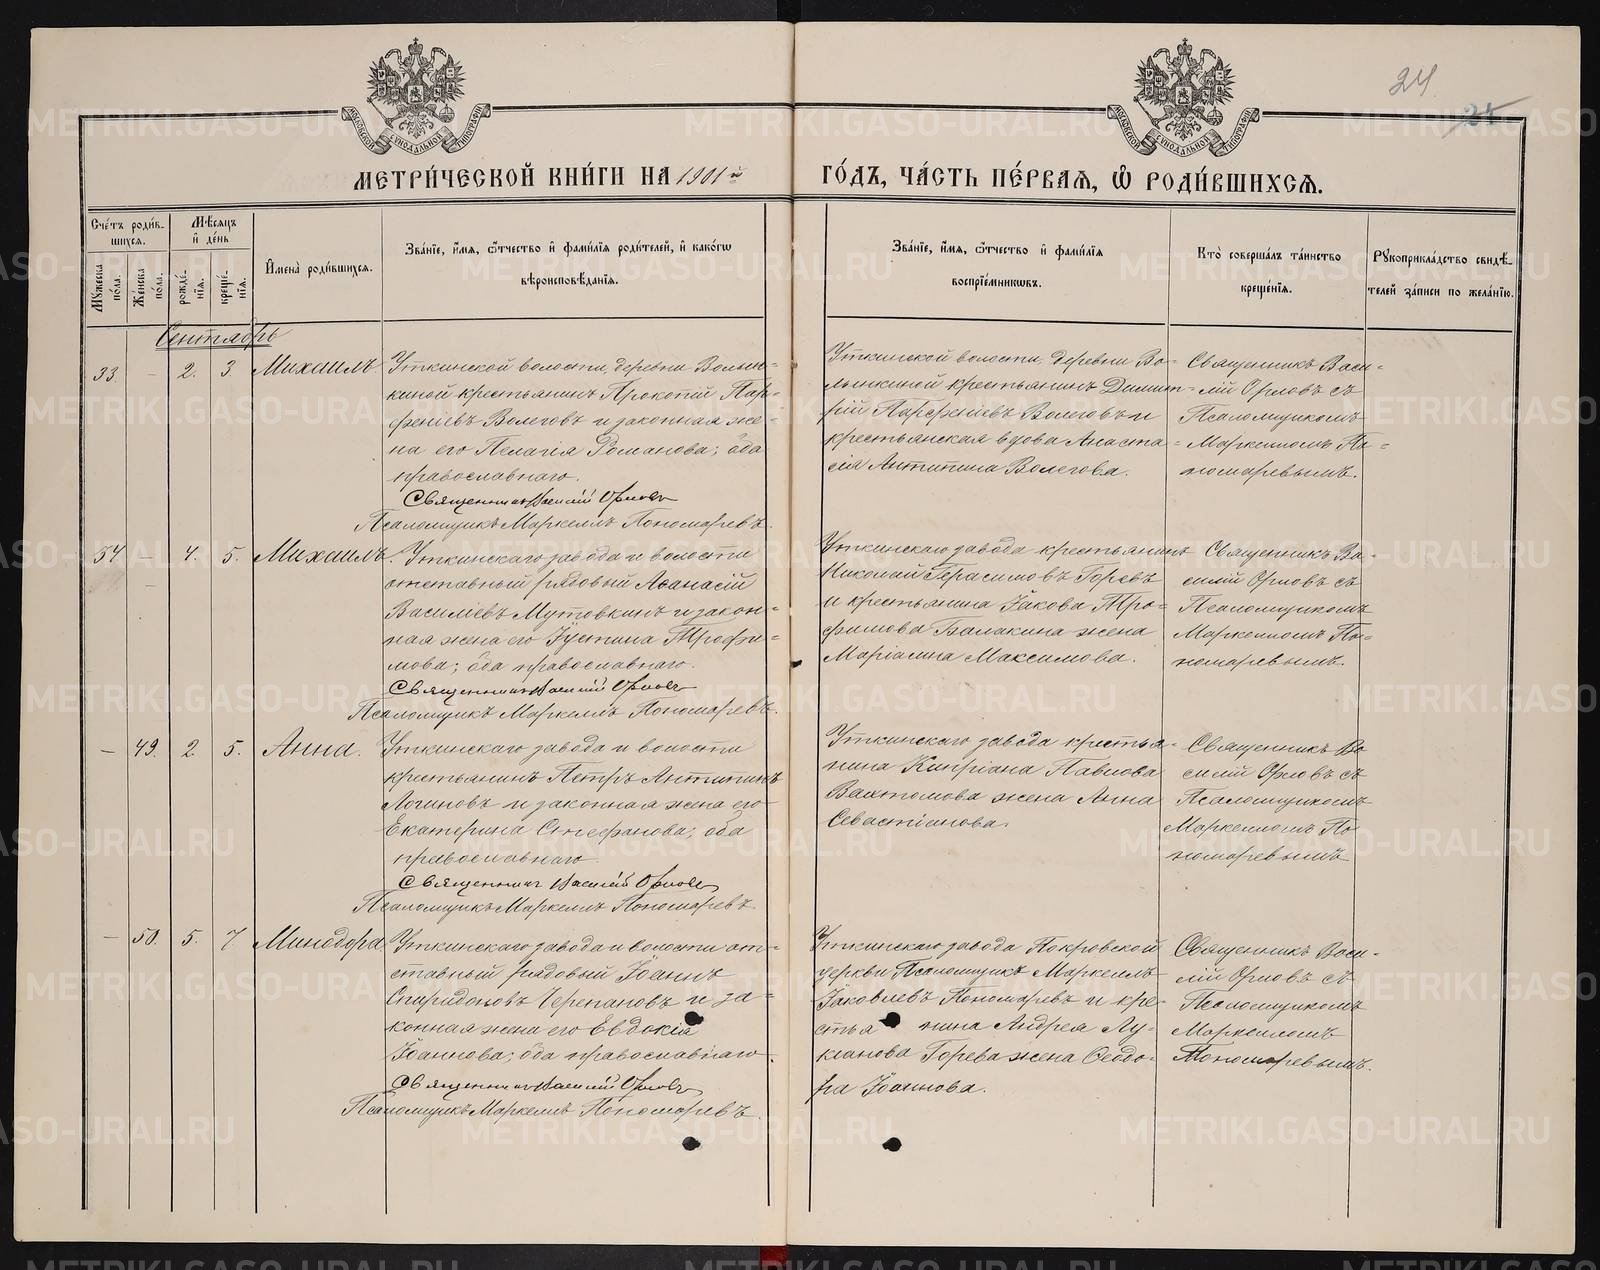 24
25
МОСКОВСКОЙ СѴНОДАЛЬНОЙ ТИПОГРАФІИ
МОСКОВСКОЙ СѴНОДАЛЬНОЙ ТИПОГРАФІИ
МЕТРИ́ЧЕСКОЙ КНИ́ГИ НА 1901й ГО́ДЪ, ЧА́СТЬ ПЕ́РВАѦ, Ѿ РОДИ́ВШИХСѦ.
Сче́тъ роди́в-
шихсѧ.
Мѣ́сѧцъ
и҆ де́нь
Мꙋ́жеска по́ла.
Же́нска по́ла.
рожде́-
нїѧ.
креще́-
нїѧ.
И҆мена̀ роди́вшихсѧ.
Зва́нїе, и҆́мѧ, ѻ҆́тчество и҆ фами́лїѧ роди́телей, и҆ како́гѡ
вѣроисповѣ́данїѧ.
Зва́нїе, и҆́мѧ, ѻ҆́тчество и҆ фами́лїѧ
воспрїе́мникѡвъ.
Кто̀ соверша́лъ та́инство
креще́нїѧ.
Рꙋкоприкла́дство свидѣ́-
телей за́писи по жела́нїю.
Сентябрь
33. - 2. 3. Михаилъ
Уткинской волости, деревни Волын-
киной крестьянинъ Прокопій Пар-
феніевъ Волеговъ и законная же-
на его Пелагія Романова; оба
православнаго.
Священникъ Василій Орловъ
Псаломщикъ Маркеллъ Пономаревъ.
Уткинской волости, деревни Во-
лынкиной крестьянинъ Димит-
рій Парфеніевъ Волеговъ и
крестьянская вдова Анаста-
сія Антипина Волегова.
Священникъ Васи-
лій Орловъ съ
Псаломщикомъ
Маркелломъ По-
номаревымъ.
54 - 4. 5. Михаилъ.
Уткинскаго завода и волости
отставный рядовый Аѳанасій
Василіевъ Мутовкинъ и закон-
ная жена его Іустина Трофи-
мова; оба православнаго.
Священникъ Василій Орловъ
Псаломщикъ Маркеллъ Пономаревъ.
Уткинскаго завода крестьянинъ
Николай Герасимовъ Горевъ
и крестьянина Іакова Тро-
фимова Балакина жена
Маріамна Максимова.
Священникъ Ва-
силій Орловъ съ
Псаломщикомъ
Маркелломъ По-
номаревымъ.
- 49. 2 5. Анна.
Уткинскаго завода и волости
крестьянинъ Петръ Антипинъ
Логиновъ и законная жена его
Екатерина Стефанова; оба
православнаго.
Священникъ Василій Орловъ
Псаломщикъ Маркеллъ Пономаревъ.
Уткинскаго завода крестья-
нина Кипріана Павлова
Вахтомова жена Анна
Севастіанова.
Священникъ Ва
силій Орловъ съ
Псаломщикомъ
Маркелломъ По
номаревымъ
- 50. 5. 7 Минодора
Уткинскаго завода и волости от-
ставный рядовый Іоаннъ
Спиридоновъ Черепановъ и за-
конная жена его Евдокія
Іоаннова; оба православнаго.
Священникъ Василій Орловъ
Псаломщикъ Маркеллъ Пономаревъ.
Уткинскаго завода Покровской
церкви Псаломщикъ Маркеллъ
Іаковлевъ Пономаревъ и кре-
стья нина Андрея Лу-
кіанова Горева жена Ѳеодо-
ра Іоаннова.
Священникъ Васи-
лій Орловъ съ
Псаломщикомъ
Маркелломъ
Пономаревымъ.
METRIKI.GASO-URAL.RU